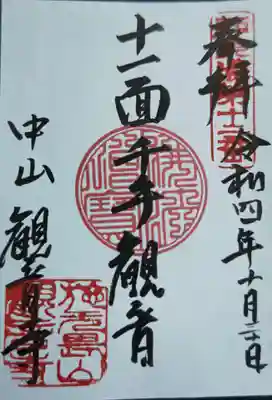 奉拝
令和四年十月二十日
十一面千手観音
中山 観音寺
佛法僧寳